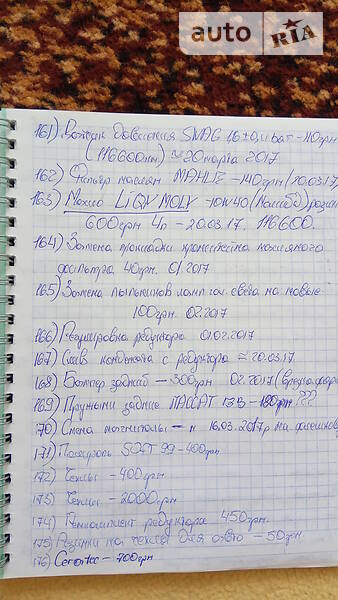 auto RIA
161) Датчик давления SWAG 1.6 ± 0,1 bar - 110грн
(116600км) ≈ 20 марта 2017
162) Фильтр маслян MAHLE - 140грн (20.03.17
163) Масло LIQUI MOLY - 10W40
600грн 4л - 20.03.17. 116600.
164) Замена прокладки кронштейна масляного
фильтра 40грн. 01.2017
165) Замена пыльников ламп гол. света на новые
100грн. 02.2017
166) Регулировка редуктора 01.02.2017
167) Слив конденсата с редуктора ≈ 20.03.17.
168) Бампер задний - 300грн 02.2017
169) Пружины задние ПАССАТ B3 - 180грн ???
170) Смена магнитолы - 16.03.2017г на
171) Полироль SOFT 99 - 400грн.
172) Чехлы - 400грн
173) Чехлы - 2000грн
174) Ремкомплект редуктора 450грн.
175) Резинки на чехлы для авто - 50грн
176) - 700грн